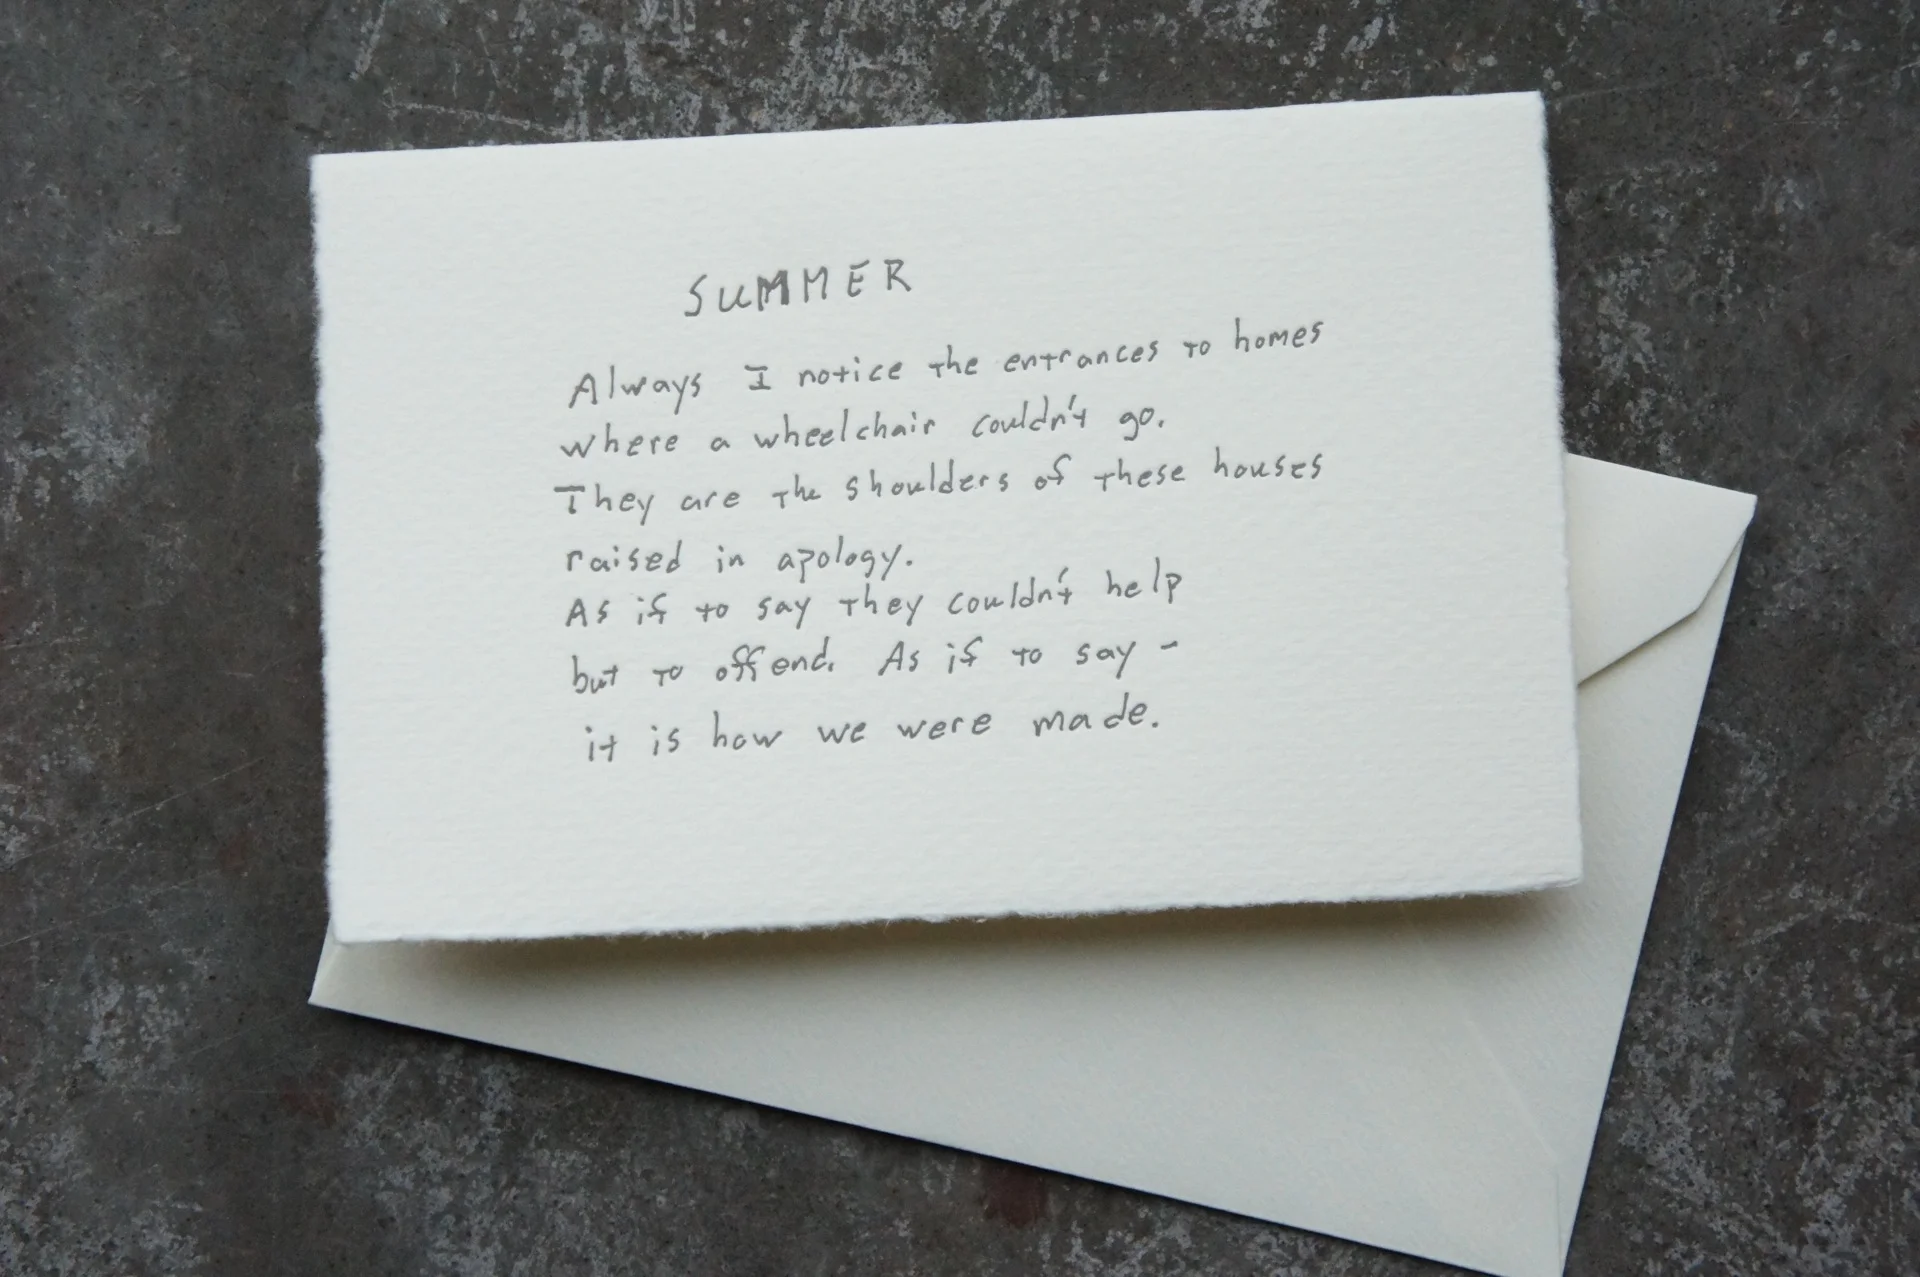 SUMMER
Always I notice the entrances to homes
where a wheelchair couldn't go.
They are the shoulders of these houses
raised in apology.
As if to say they couldn't help
but to offend. As if to say -
it is how we were made.